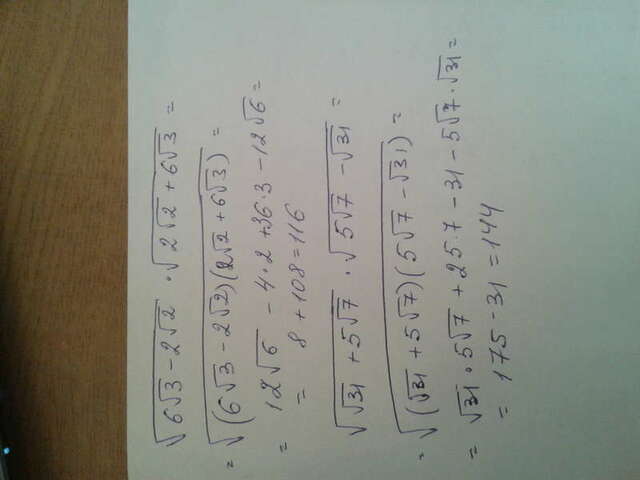 √(6√3 - 2√2) · √(2√2 + 6√3) =
= √((6√3 - 2√2)(2√2 + 6√3)) =
= 12√6 - 4·2 + 36·3 - 12√6 =
= 8 + 108 = 116
√(√31 + 5√7) · √(5√7 - √31) =
= √((√31 + 5√7)(5√7 - √31)) =
= √31 · 5√7 + 25·7 - 31 - 5√7 · √31 =
= 175 - 31 = 144